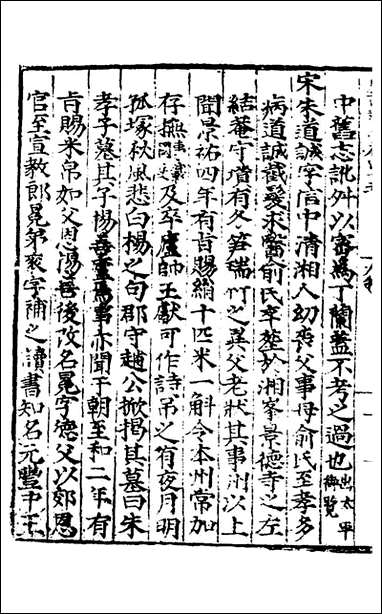 中舊志訛舛以審為丁蘭蓋不考之過也出太平御覽
宋朱道誠字信中清湘人幼喪父事母俞氏至孝多
病道誠截髮求醫俞氏卒塟於湘峯景德寺之左
結菴守墳有冬笋瑞竹之異父老狀其事州以上
聞景祐四年有旨賜絹十匹米一斛令本州常加
存撫及卒盧帥王獻可作詩吊之有夜月明
孤塚秋風悲白楊之句郡守趙公掀揭其墓曰朱
孝子墓其子惕亦聞于朝至和二年有
旨賜米帛如父恩惕後改名冕字德父以郊恩
官至宣教郎冕弟袞字補之讀書知名元豐中王